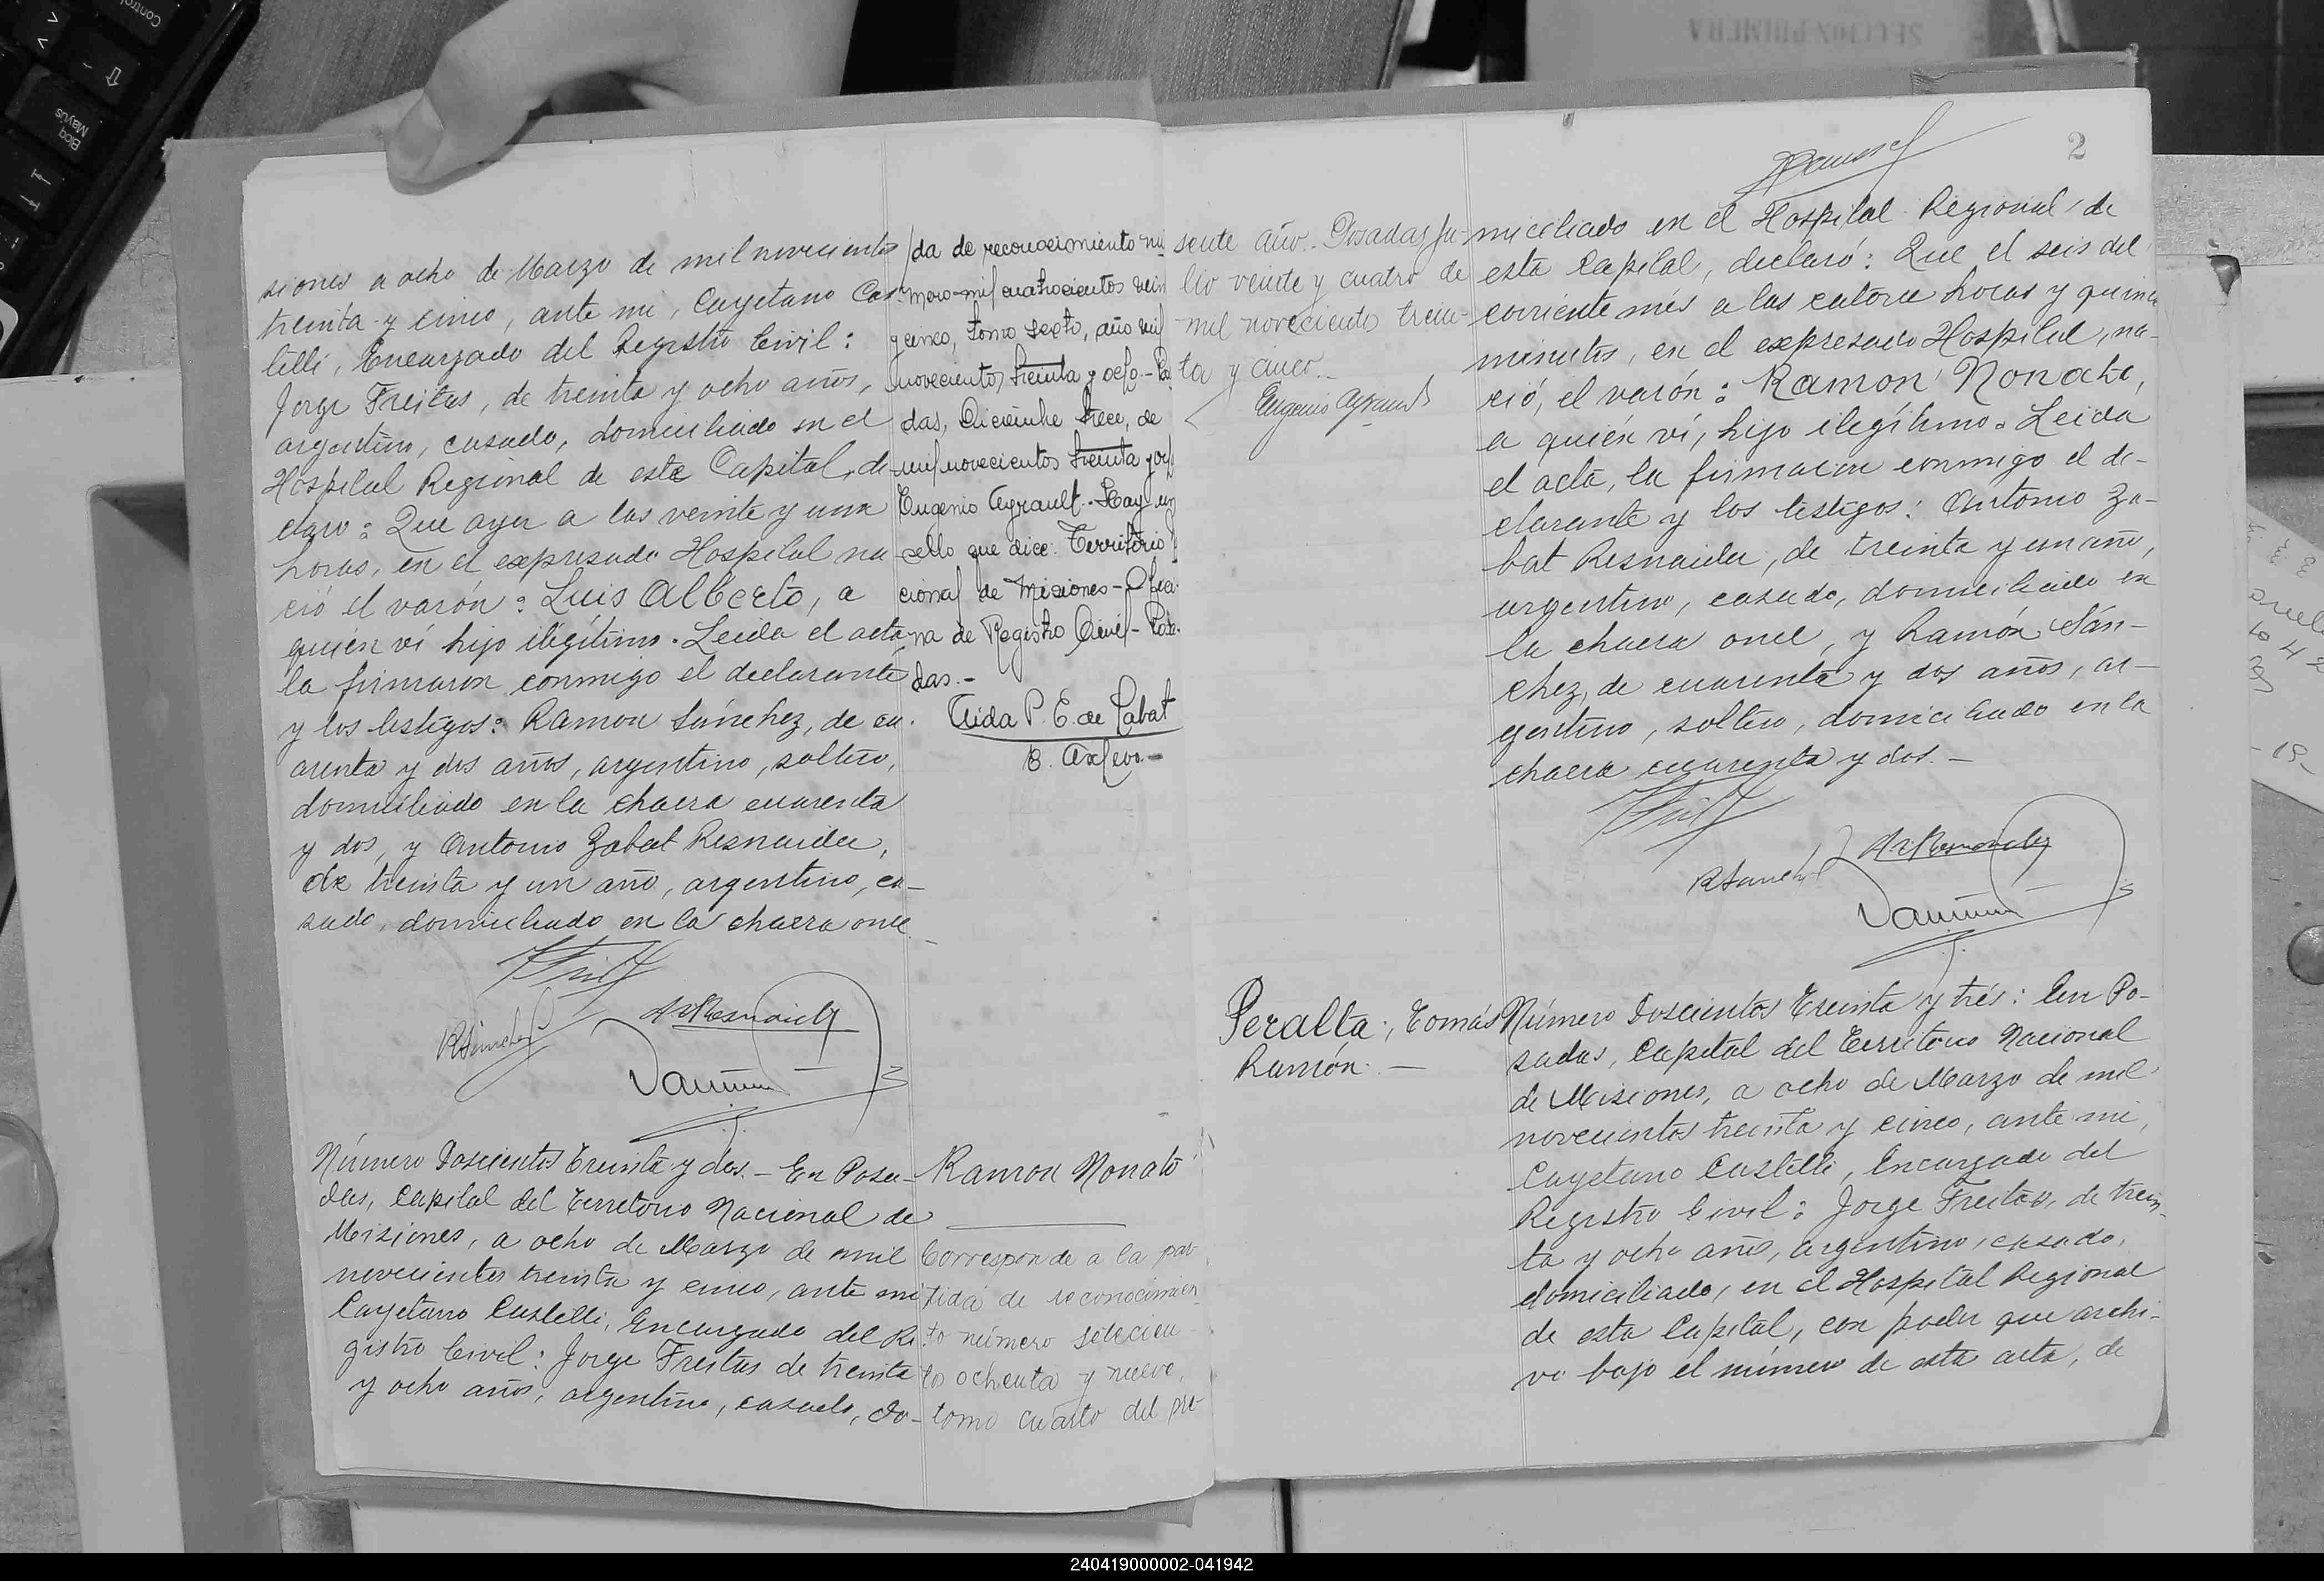 siones a ocho de Marzo de mil novecientos
treinta y cinco, ante mi, Cayetano Cas-
telli, Encargado del Registro Civil:
Jorge Freitas, de treinta y ocho años,
argentino, casado, domiciliado en el
Hospital Regional de esta Capital, de-
claro: Que ayer a las veinte y una
horas, en el expresado Hospital na-
ció el varón: Luis Alberto, a
quien ví hijo ilegítimo. Leida el acta
la firmaron conmigo el declarante
y los testigos: Ramon Sánchez, de cu-
arenta y dos años, argentino, soltero,
domiciliado en la chacra cuarenta
y dos, y Antonio Zabat Resnaider,
de treinta y un año, argentino, ca-
sado, domiciliado en la chacra once
da de reconocimiento nú-
mero mil cuatrocientos vein
y cinco, tomo sexto, año mil
novecientos treinta y ocho - Posa
das, Diciembre trece, de
mil novecientos treinta y och
Eugenio Ayrault. - Hay un
sello que dice: Territorio
cional de Misiones - Ofici-
na de Registro Civil - Posa-
das. -
Aida P. E. de Labat
RSánchez
Número Doscientos Treinta y dos. - En Posa-
das, Capital del Territorio Nacional de
Misiones, a ocho de Marzo de mil
novecientos treinta y cinco, ante mi
Cayetano Castelli, Encargado del Re-
gistro Civil: Jorge Freitas de treinta
y ocho años, argentino, casado, do-
Ramon Nonato
Corresponde a la par
tida de reconocimien
to número setecien
to ochenta y nueve,
tomo cuarto del pre
sente año. Posadas ju-
lio veinte y cuatro de
mil novecientos trein-
ta y cinco.
Eugenio Ayrault
2
miciliado en el Hospital Regional de
esta Capital, declaró: Que el seis del
corriente més a las catorce horas y quince
minutos, en el expresado Hospital, na-
ció, el varón: Ramon Nonato,
a quién ví, hijo ilegítimo. Leida
el acta, la firmaron conmigo el de-
clarante y los testigos: Antonio Za-
bat Resnaider, de treinta y un año,
argentino, casado, domiciliado en
la chacra once, y Ramón Sán-
chez, de cuarenta y dos años, ar-
gentino, soltero, domiciliado en la
chacra cuarenta y dos. -
RSanchez
Peralta, Tomás
Ramón. -
Número Doscientos Treinta y trés: En Po-
sadas, Capital del Territorio Nacional
de Misiones, a ocho de Marzo de mil
novecientos treinta y cinco, ante mi,
Cayetano Castelli, Encargado del
Registro Civil: Jorge Freitas, de trein-
ta y ocho años, argentino, casado,
domiciliado, en el Hospital Regional
de esta Capital, con poder que archi-
vo bajo el número de esta acta, de
240419000002-041942